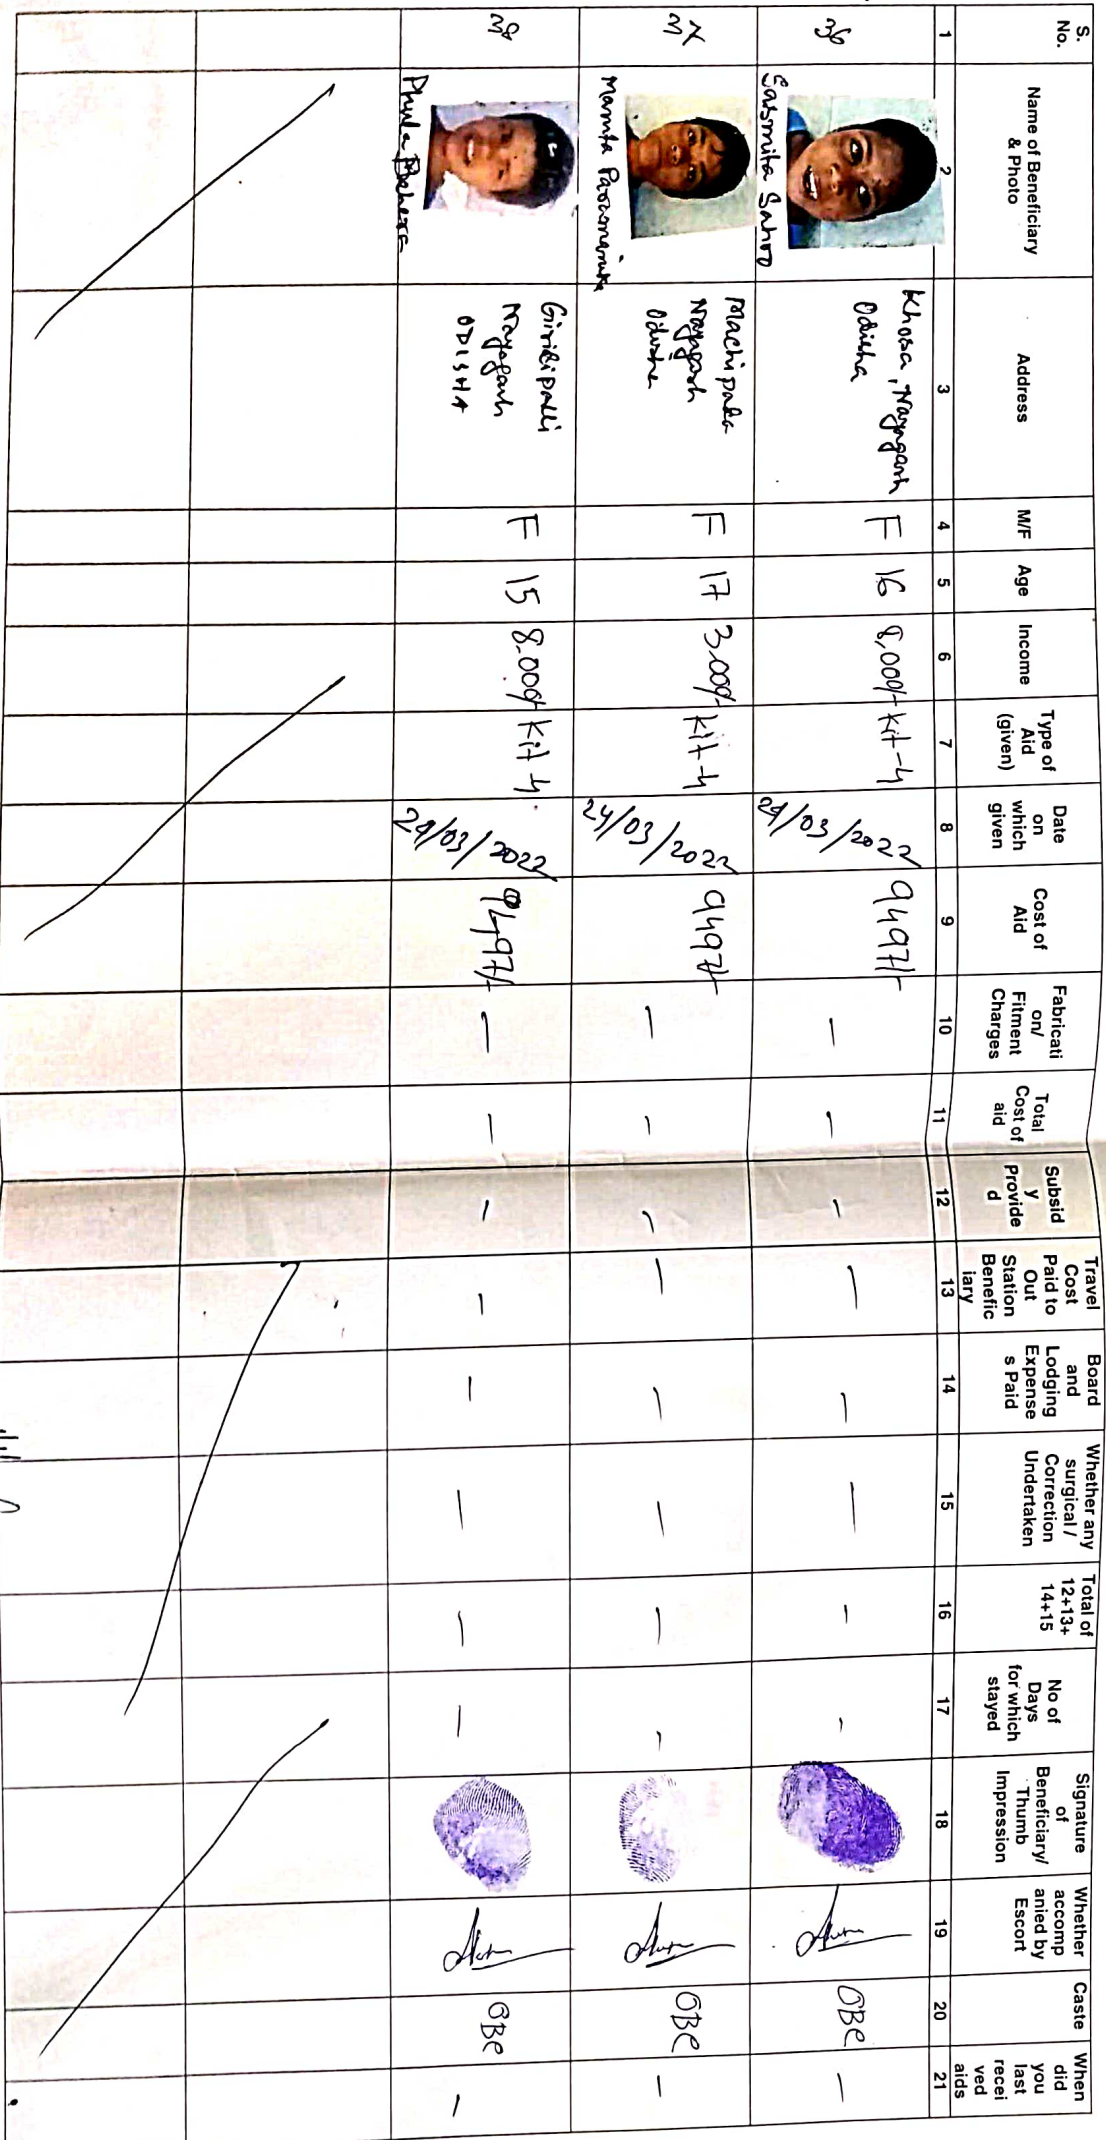 S. No.
Name of Beneficiary & Photo
Address
M/F
Age
Income
Type of Aid (given)
Date on which given
Cost of Aid
Fabricati on/ Fitment Charges
Total Cost of aid
Subsid y Provide d
Travel Cost Paid to Out Station Benefic iary
Board and Lodging Expense s Paid
Whether any surgical / Correction Undertaken
Total of 12+13+ 14+15
No of Days for which stayed
Signature of Beneficiary/ Thumb Impression
Whether accomp anied by Escort
Caste
When did you last recei ved aids
1 2 3 4 5 6 7 8 9 10 11 12 13 14 15 16 17 18 19 20 21
36 Sasmita Sahoo Khosa, Nayagarh Odisha F 16 8,000/- kit-4 29/03/2022 9497/- — — — — — — — — OBC —
37 Mamta Machipada Nayagarh F 17 3,000/- kit-4 24/03/2022 9497/- — — — — — — — — OBC —
38 Phula Behera Giridipalli Nayagarh ODISHA F 15 8.000/- kit 4 29/03/2022 9497/- — — — — — — — — OBC —